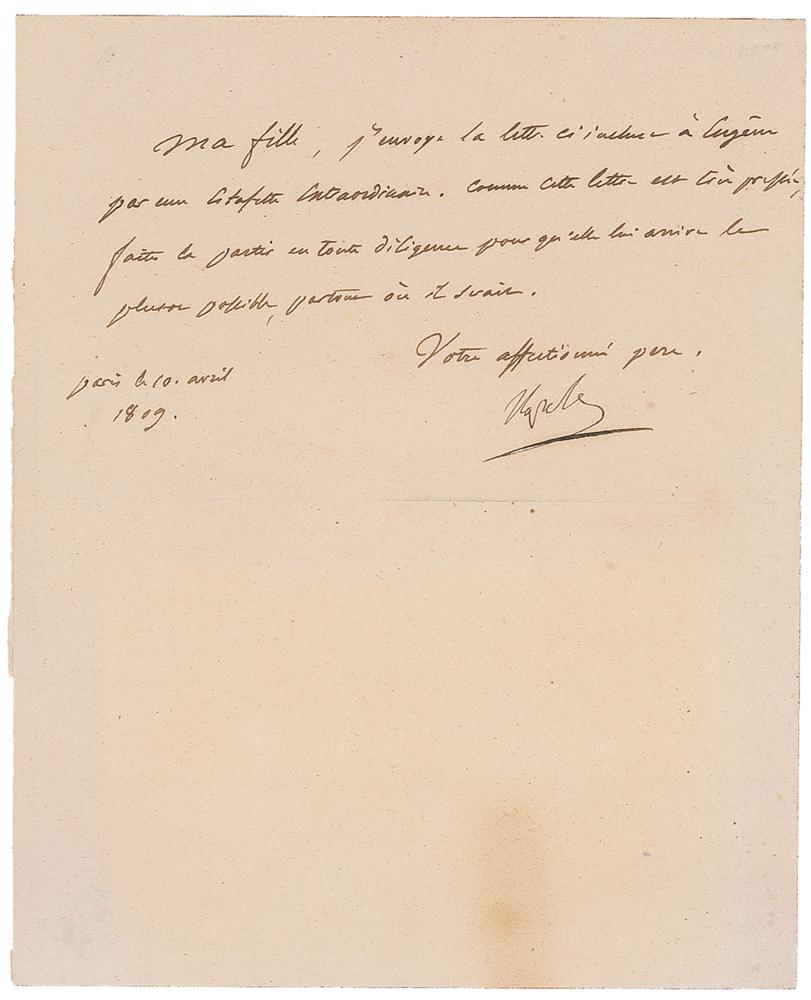 Ma fille, j'envoye la lettre ci incluse à Eugène
par une Estafette Extraordinaire. Comme cette lettre est très pressée,
faites la partir en toute diligence pour qu'elle lui arrive le
plutot possible, partout où il serait.
Votre affectionné pere.
paris le 10. avril
1809.